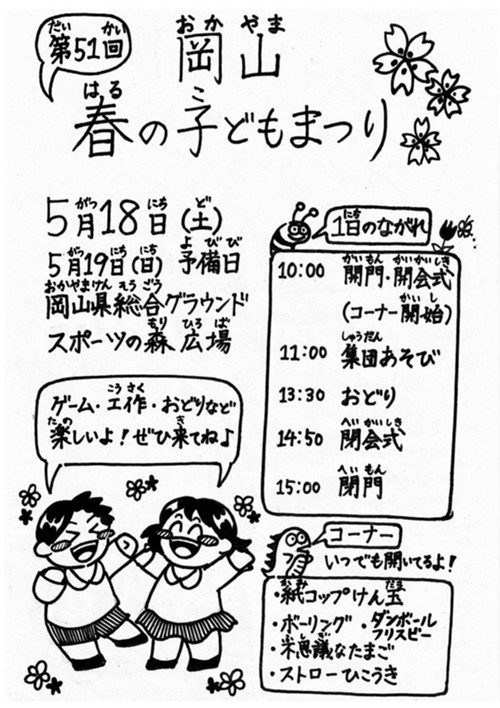 第51回
岡山
春の子どもまつり
5月18日(土)
5月19日(日) 予備日
岡山県総合グラウンド
スポーツの森 広場
1日のながれ
10:00 開門・開会式
(コーナー開始)
11:00 集団あそび
13:30 おどり
14:50 閉会式
15:00 閉門
ゲーム・工作・おどりなど
楽しいよ！ぜひ来てね♪
コーナー
いつでも開いてるよ！
・紙コップけん玉
・ボーリング ・ダンボールフリスビー
・不思議なたまご
・ストローひこうき